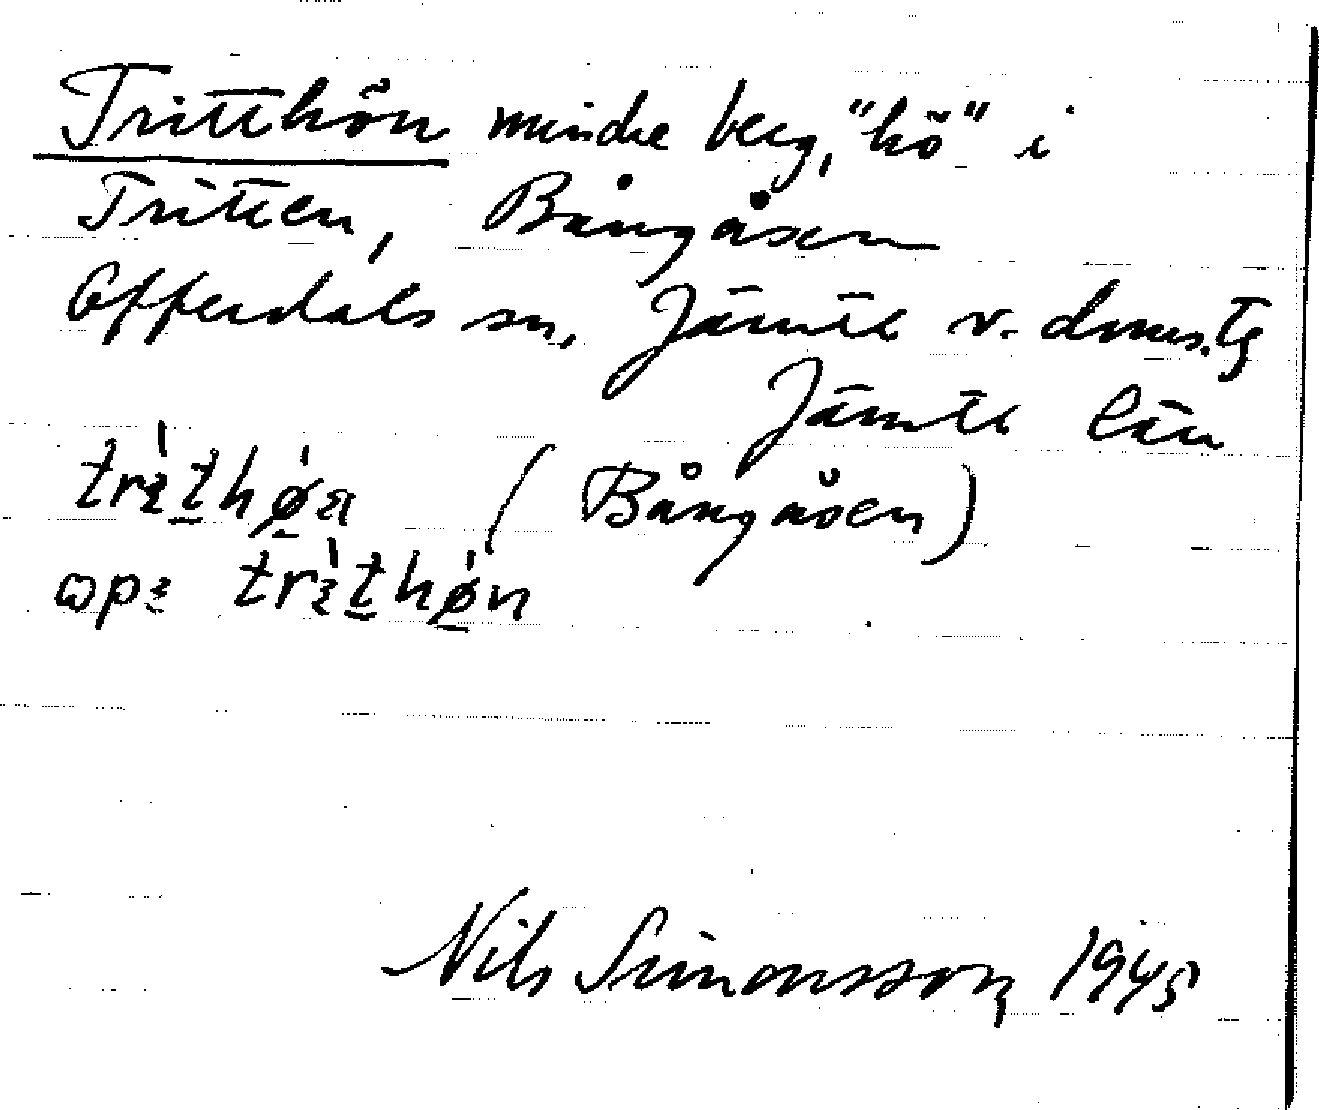 Tritthön mindre berg, "hö" i
Tritten, Bångåsen
Offerdals sn, Jämtl v. doms. tg
Jämtl län
(Bångåsen)
Nils Simonsson, 1945